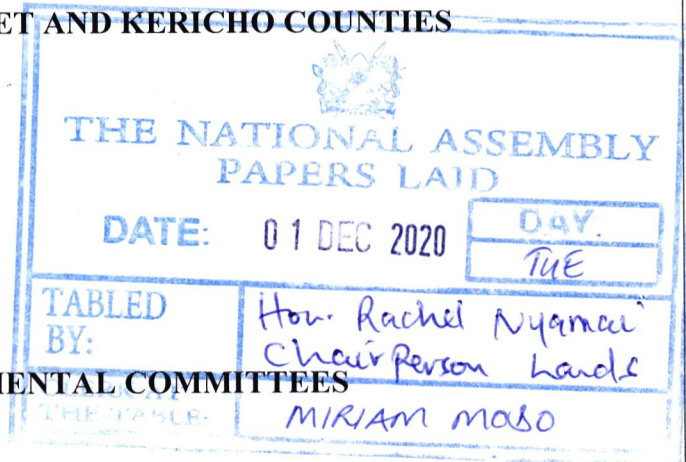 ET AND KERICHO COUNTIES
THE NATIONAL ASSEMBLY
PAPERS LAID
DATE: 01 DEC 2020
DAY.
TUE
TABLED
BY:
Hon. Rachel Nyamai
Chairperson Lands
MENTAL COMMITTEES
THE-TABLE:
MIRIAM MODO